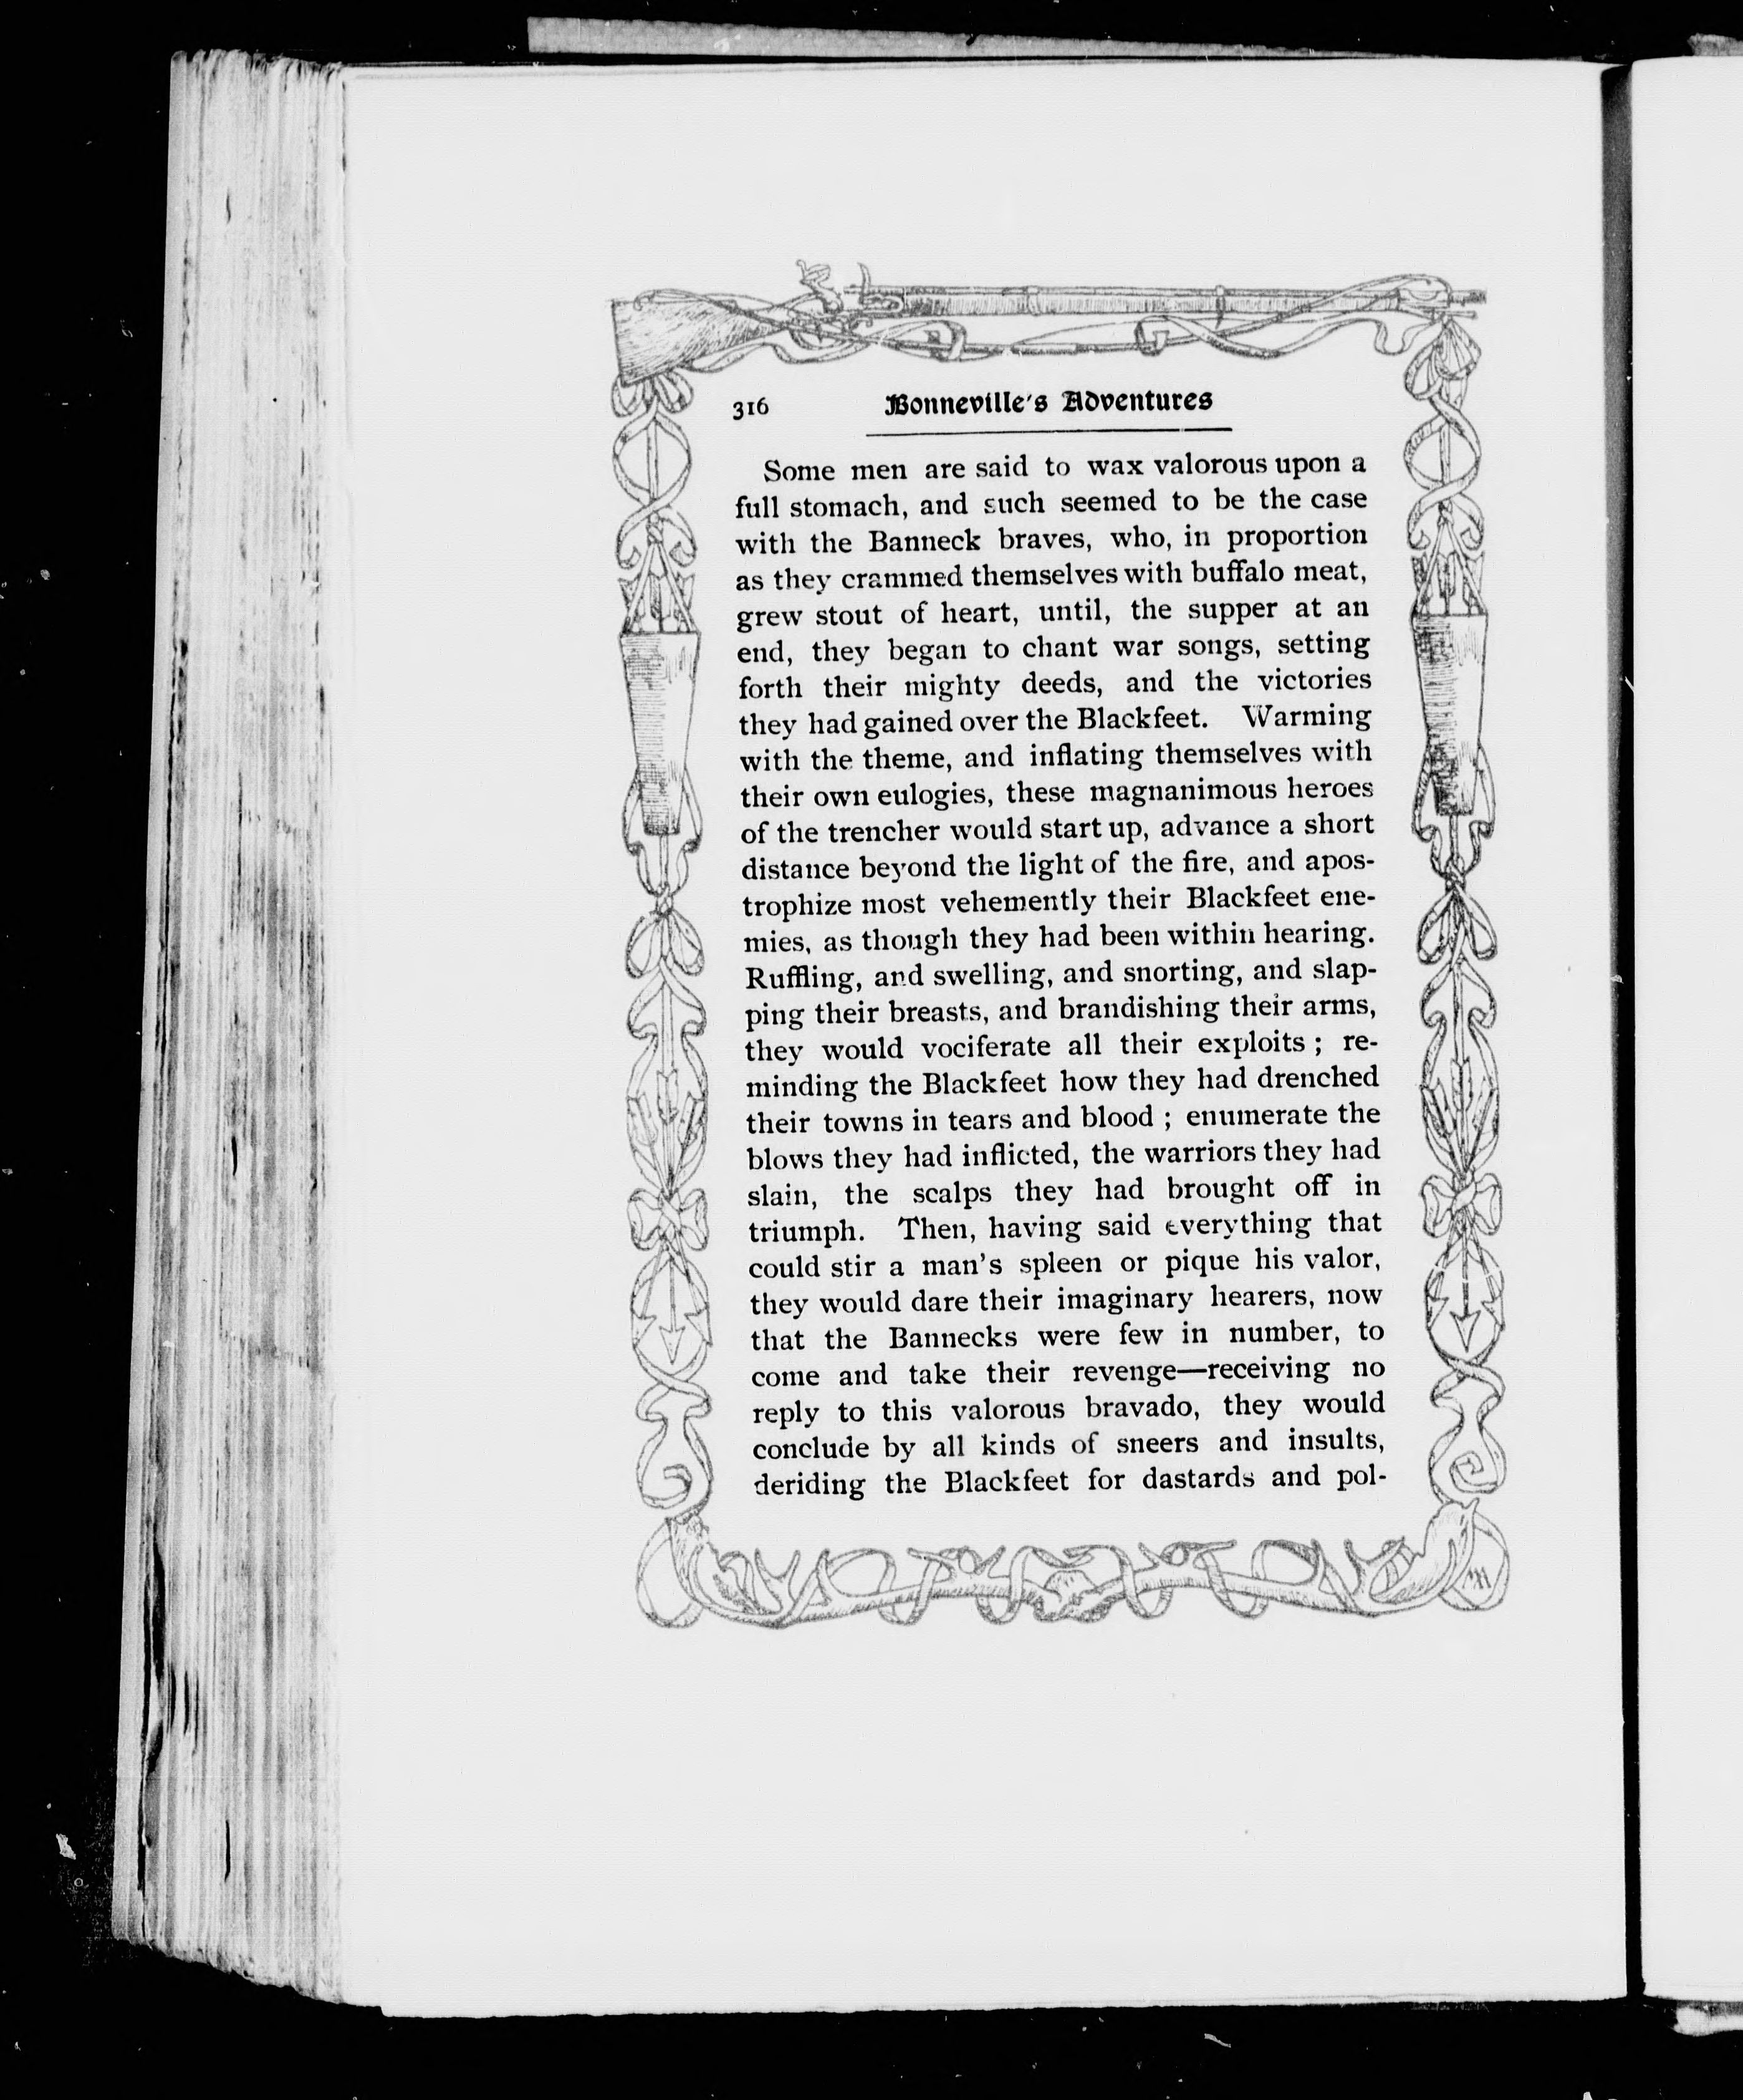 316 Bonneville's Adventures
Some men are said to wax valorous upon a
full stomach, and such seemed to be the case
with the Banneck braves, who, in proportion
as they crammed themselves with buffalo meat,
grew stout of heart, until, the supper at an
end, they began to chant war songs, setting
forth their mighty deeds, and the victories
they had gained over the Blackfeet. Warming
with the theme, and inflating themselves with
their own eulogies, these magnanimous heroes
of the trencher would start up, advance a short
distance beyond the light of the fire, and apos-
trophize most vehemently their Blackfeet ene-
mies, as though they had been within hearing.
Ruffling, and swelling, and snorting, and slap-
ping their breasts, and brandishing their arms,
they would vociferate all their exploits ; re-
minding the Blackfeet how they had drenched
their towns in tears and blood ; enumerate the
blows they had inflicted, the warriors they had
slain, the scalps they had brought off in
triumph. Then, having said everything that
could stir a man's spleen or pique his valor,
they would dare their imaginary hearers, now
that the Bannecks were few in number, to
come and take their revenge—receiving no
reply to this valorous bravado, they would
conclude by all kinds of sneers and insults,
deriding the Blackfeet for dastards and pol-